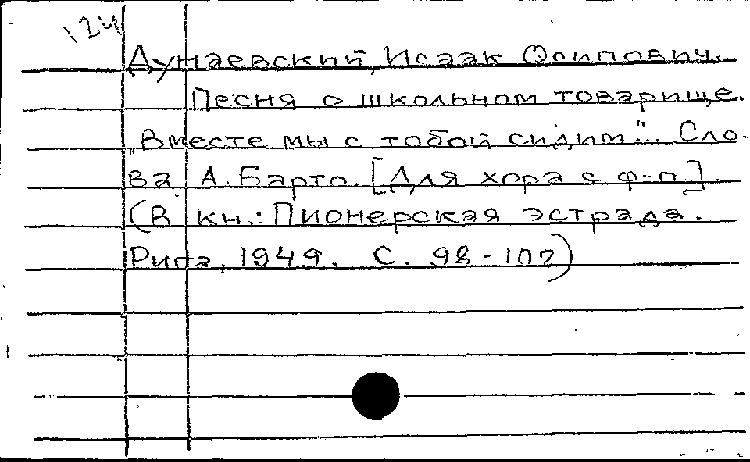 124
Дунаевский, Исаак Осипович.
Песня о школьном товарище.
„Вместе мы с тобой сидим"... Сло-
ва А. Барто. [Для хора с ф-п.].
(В кн.: Пионерская эстрада.
Рига, 1949. С. 98-102)